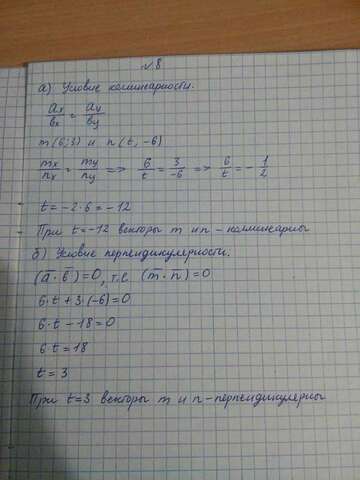 №8
а) Условие коллинарности.
ax/bx = ay/by
m(6;3) и n(t,-6)
mx/nx = my/ny => 6/t = 3/-6 => 6/t = -1/2
t=-2·6=-12
При t=-12 векторы m и n - коллинарны
б) Условие перпендикулярности.
(a·b)=0, т.е (m·n)=0
6·t+3·(-6)=0
6·t-18=0
6t=18
t=3
При t=3 векторы m и n-перпендикулярны